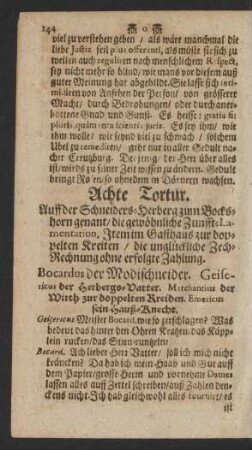 194 ❀ o ❀
viel zu verstehen geben / als wäre manchmal die
liebe Justiz feil plus offerenti, als müste sie sich zu
weilen auch reguliren nach menschlichem Respect,
sey nicht mehr so blind, wie mans vor diesem auß
guter Meinung hat abgebildt. Sie lasse sich inti-
midiren von Ansehen der Person / von grösserer
Macht / durch Bedrohungen / oder durch aner-
bottene Gnad und Gunst. Es heisse: gratia sit
pluris, quàm tota scientia juris. Es sey ihm / wie
ihm wolle / wir seynd viel zu schwach / solchem
Ubel zu remediren / geht nur in aller Gedult na-
cher Creutzburg. Derjenig / der Herr über alles
ist / wirds zu seiner Zeit wissen zu ändern. Gedult
bringt Rosen / so ohnedem in Dörnern wachsen.
Achte Tortur.
Auff der Schneiders-Herberg zum Bocks-
horn genant / die gewöhnliche Zunfft-La-
mentation, Item im Gasthaus zur dop-
pelten Kreiten / die unglückliche Zech-
Rechnung ohne erfolgte Zahlung.
Bocardus der Modischneider. Geise-
ricus der Herbergs-Vatter. Marchantius der
Wirth zur doppelten Kreiden. Emericus
sein Hauß-Knecht.
Geisericus Meister Bocard, wie so zerschlagen? Was
bedeut das hinter den Ohren Kratzen, das Käpp-
lein rucken / das Stirn-runtzeln
Bocard. Ach lieber Herr Vatter / soll ich mich nicht
kräncken? Da hab ich mein Haab und Gut auff
dem Papier / grosse Herrn und vornehme Dames
lassen alles auff Zettel schreiben / auß Zahlen den-
ckens nicht. Ich hab gleichwohl alles fournirt / es
ist